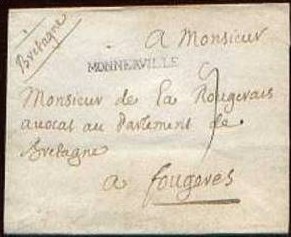 Bretagne
A Monsieur
MONNERVILLE
Monsieur de La Rougerais
avocat au Parlement de
Bretagne
a fougeres